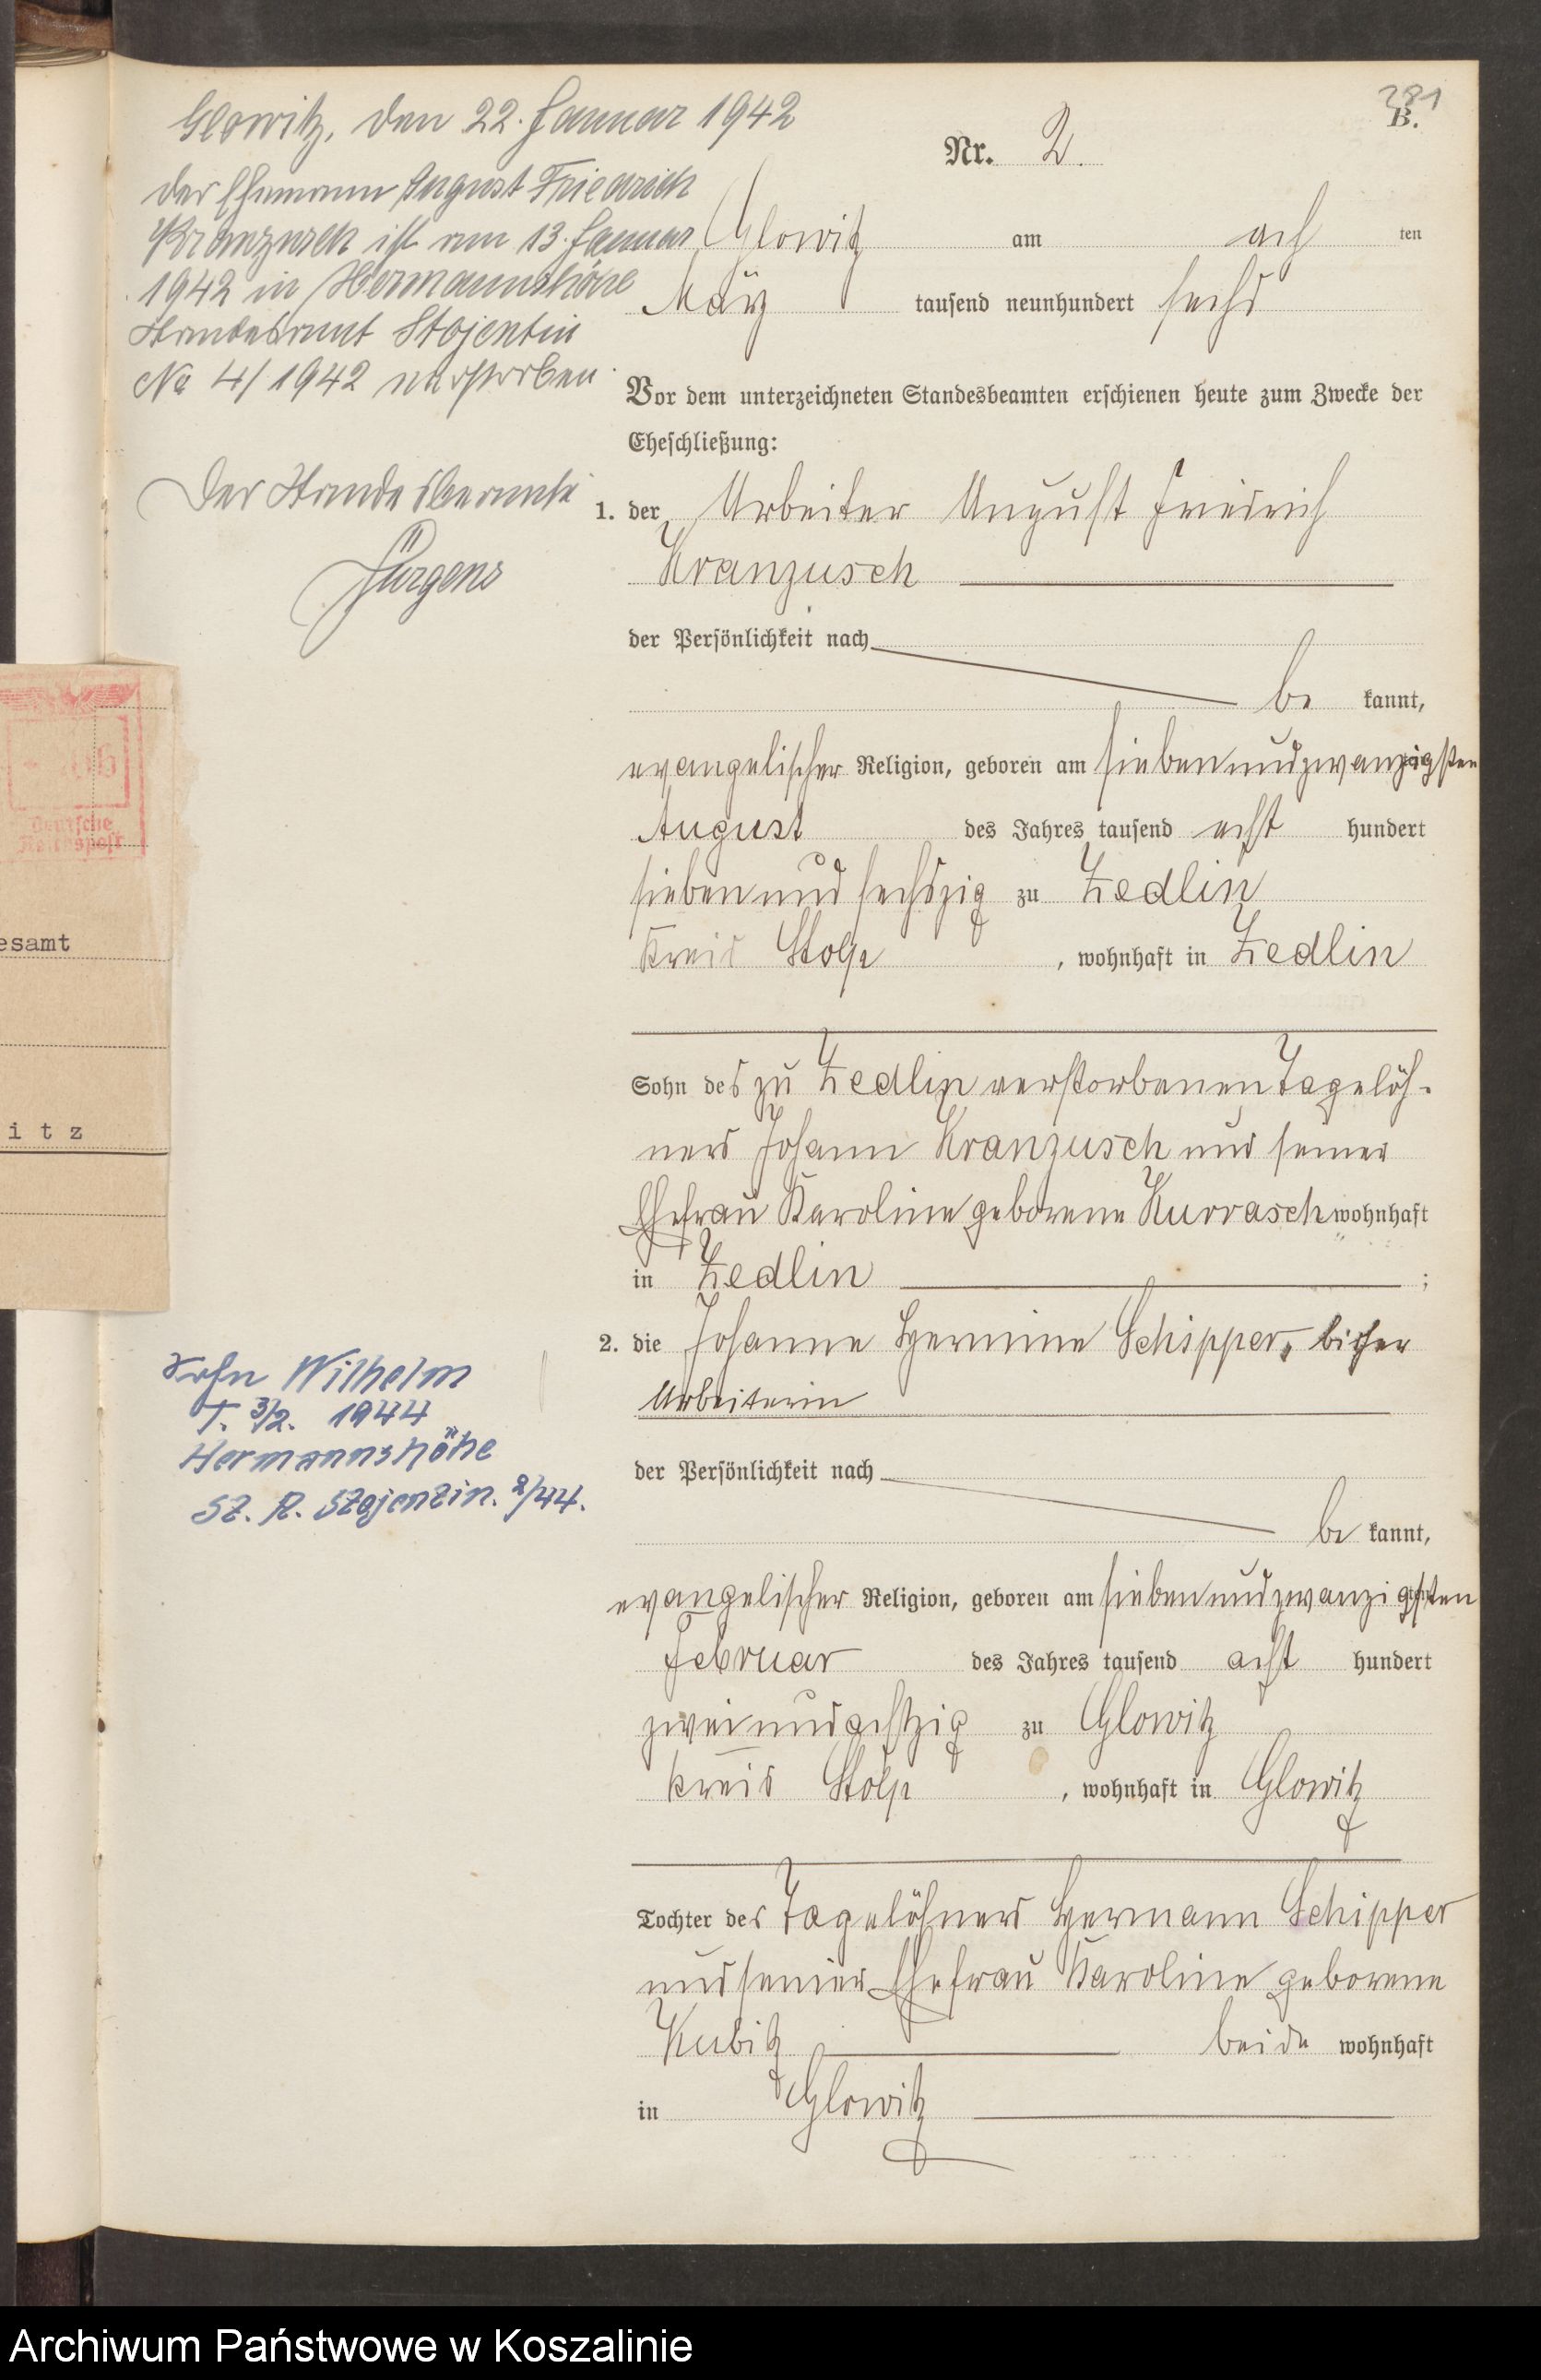 281
B.
Glowitz, den 22. Januar 1942
Der Ehemann August Friedrich
Kranzusch ist am 13. Januar
1942 in Hermannshöhe
Standesamt Stojentin
No 4/1942 verstorben.
Der Standesbeamte
Jürgens
Nr. 2.
Glowitz am ach ten
März tausend neunhundert sechs
Vor dem unterzeichneten Standesbeamten erschienen heute zum Zwecke der
Eheschließung:
1. der Arbeiter August Friedrich
Kranzusch
der Persönlichkeit nach
be kannt,
evangelischer Religion, geboren am siebenundzwanzigsten
August des Jahres tausend acht hundert
siebenundsechszig zu Zedlin
Kreis Stolp , wohnhaft in Zedlin
Sohn des zu Zedlin verstorbenen Tagelöh-
ners Johann Kranzusch und seiner
Ehefrau Karoline geborene Kurrasch wohnhaft
in Zedlin ;
2. die Johanne Hermine Schipper, bisher
Arbeiterin
der Persönlichkeit nach
be kannt,
evangelischer Religion, geboren am siebenundzwanzigsten
Februar des Jahres tausend acht hundert
zweiundachtzig zu Glowitz
Kreis Stolp , wohnhaft in Glowitz
Tochter des Tagelöhners Hermann Schipper
und seiner Ehefrau Karoline geborene
Kubitz beide wohnhaft
in Glowitz
Deutsche
Reichspost
esamt
itz
Sohn Wilhelm
T. 3/2. 1944
Hermannshöhe
St. A. Stojentin. 2/44.
Archiwum Państwowe w Koszalinie